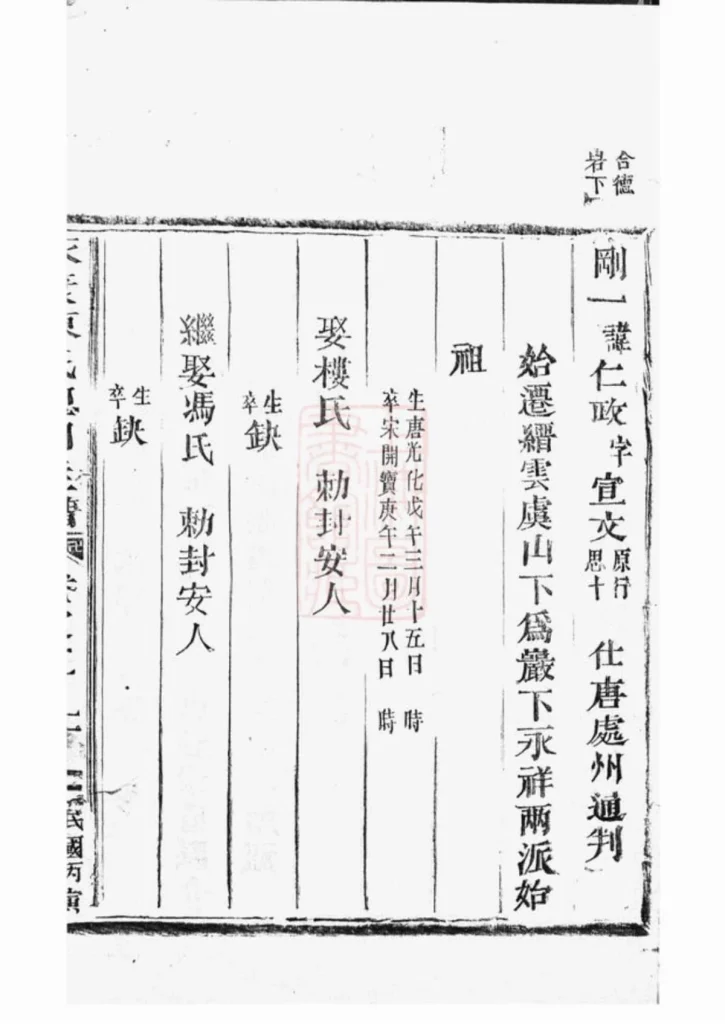 合德
岩下
剛一諱仁政字宣文原行思十 仕唐處州通判
始遷縉雲虞山下為嚴下永祥兩派始
祖
生唐光化戊午三月十五日 時
卒宋開寶庚午二月廿八日 時
娶樓氏 勅封安人
生
卒
缺
繼娶馮氏 勅封安人
生
卒
缺
民國丙寅